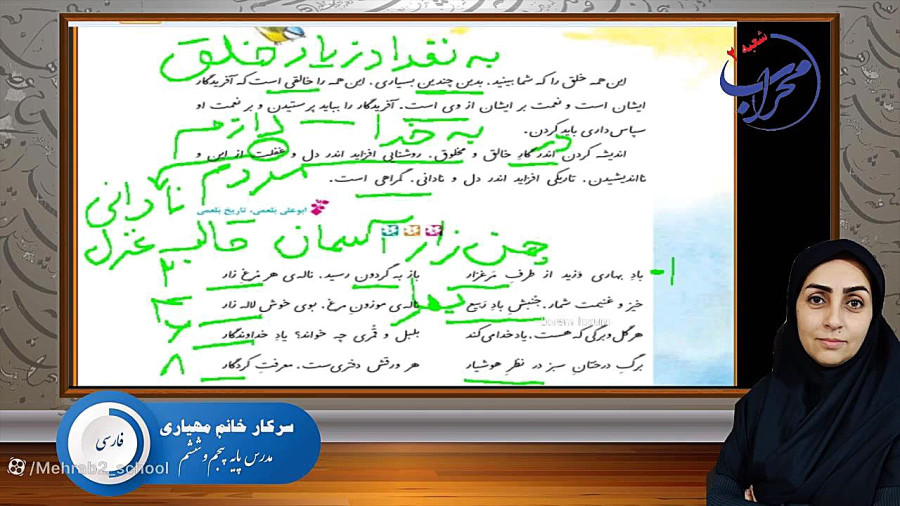 به تعداد زیاد خلق
این همه خلق را که شما بینید، بدین چندین بسیاری، این همه را خالقی است که آفریدگار
ایشان است و نعمت بر ایشان از وی است. آفریدگار را بباید پرستیدن و بر نعمت او
سپاس‌داری باید کردن.
به خدا لازم
در
اندیشه کردن اندر کار خالق و مخلوق، روشنایی افزاید اندر دل و غفلت از این و
نااندیشیدن، تاریکی افزاید اندر دل و نادانی، گمراهی است.
مردم نادانی
ابوعلی بلعمی، تاریخ بلعمی
چمن زار آسمان قالب غزل
۱- باد بهاری وزید از طرف مرغزار باز به گردون رسید، ناله‌ی هر مرغ زار ۲
خیز و غنیمت شمار، جنبش باد ربیع ناله‌ی موزون مرغ، بوی خوش لاله زار
بهار
هر گل و برگی که هست، یاد خدا می‌کند بلبل و قمری چه خواند؟ یاد خداوندگار ۶
برگ درختان سبز در نظر هوشیار هر ورقش دفتری‌ست، معرفت کردگار ۸
شعبه ۲
محراب
سرکار خانم مهیاری
مدرس پایه پنجم و ششم
فارسی
/Mehrab2_school